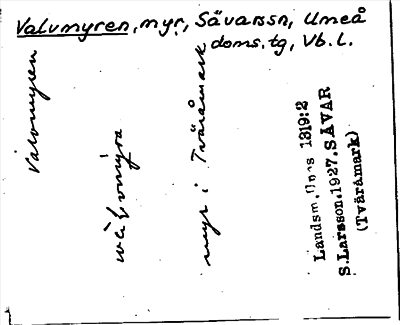 Valvmyren, myr, Sävarssn, Umeå
doms.tg, Vb.l.
Valvmyren
myr i Tväråmark
Landsm. Ups 1319:2
S.Larsson.1927.SÄVAR
(Tväråmark)